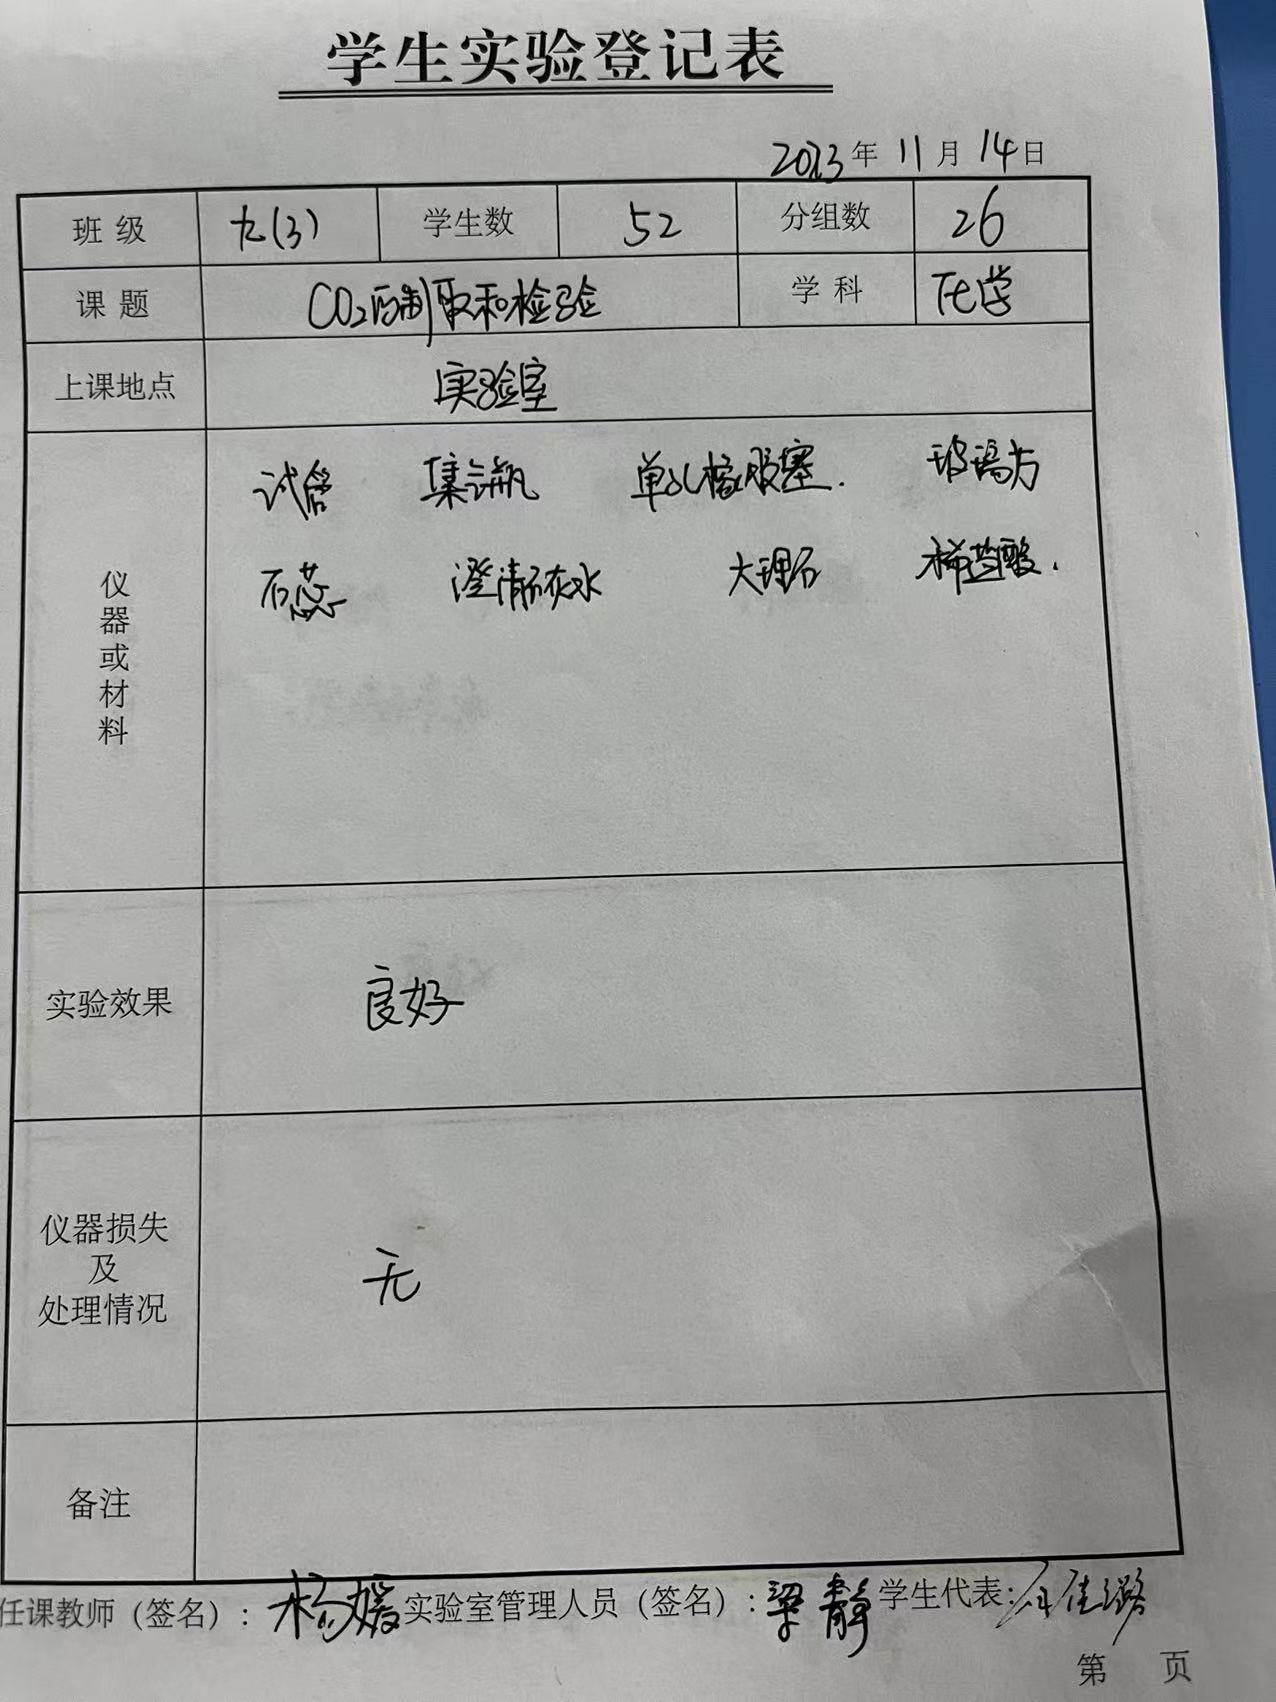 学生实验登记表
2023年 11月 14日
班级 九(3) 学生数 52 分组数 26
课题 CO₂的制取和检验 学科 化学
上课地点 实验室
仪器或材料
试管 集气瓶 单孔橡胶塞. 玻璃片
石蕊 澄清石灰水 大理石 稀盐酸.
实验效果 良好
仪器损失
及
处理情况
无
备注
任课教师（签名）: 杨媛 实验室管理人员（签名）: 梁静 学生代表:
第 页